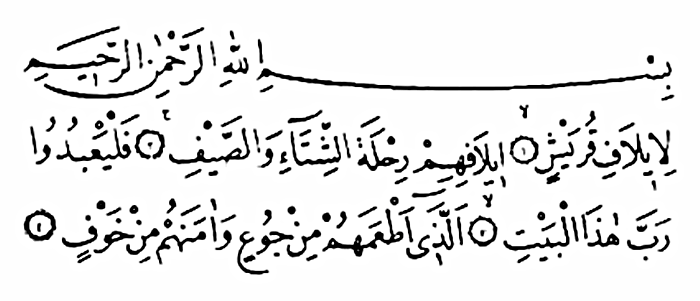 بِسْمِ اللّٰهِ الرَّحْمٰنِ الرَّحٖيمِ
لِاٖيلَافِ قُرَيْشٍۙ ﴿١﴾ اٖيلَافِهِمْ رِحْلَةَ الشِّتَٓاءِ وَالصَّيْفِۚ ﴿٢﴾ فَلْيَعْبُدُوا
رَبَّ هٰذَا الْبَيْتِۙ ﴿٣﴾ اَلَّذٖٓى اَطْعَمَهُمْ مِنْ جُوعٍ وَاٰمَنَهُمْ مِنْ خَوْفٍ ﴿٤﴾